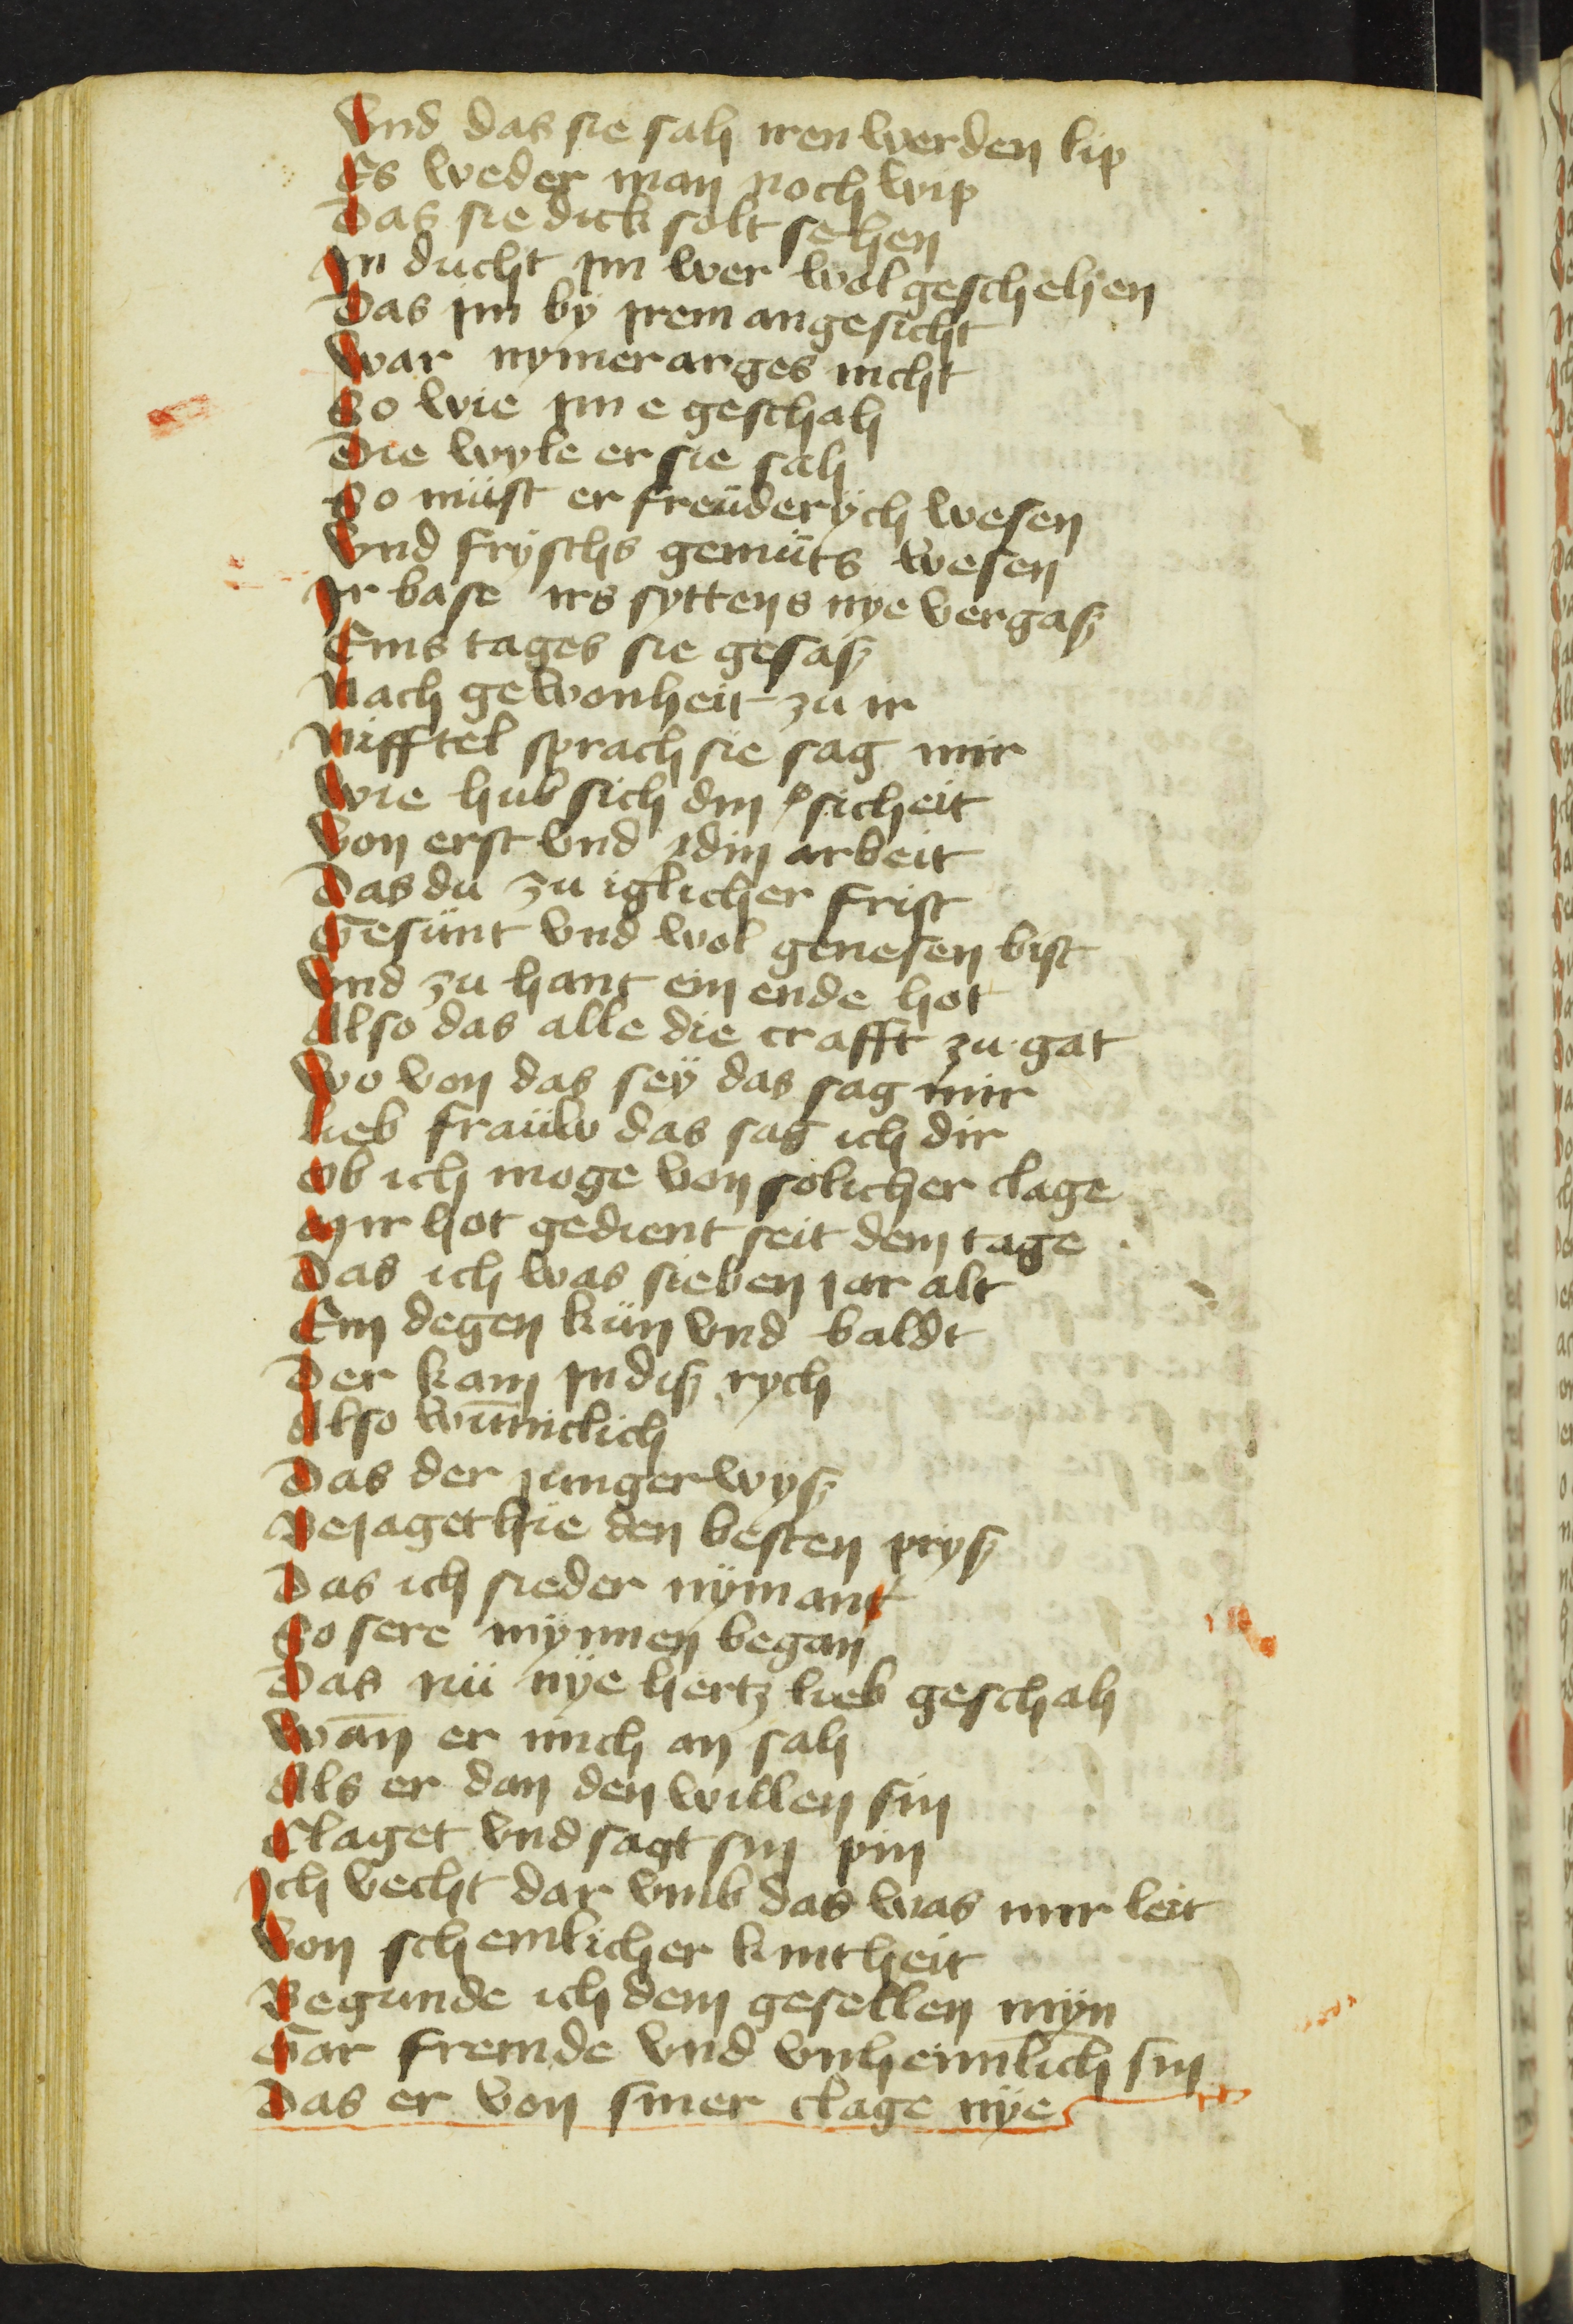 Vnd das sie sah iren werden lip
Es weder man noch wip
Das sie dick solt sehen
In ducht im wer wol geschehen
Das im by irem angesicht
War nymer arges nicht
So wie im e geschah
Die wyle er sie sah
So müst er freüderÿch wesen
Vnd fryschs gemüts wesen
Ir base irs syttens nye vergaß
Eins tages sie gesaß
Nach gewonheit zu ir
Nifftel sprach sie sag mir
Wie hub sich din sicheit
Von erst vnd din arbeit
Das du zu iglicher frist
Gesünt vnd wol genesen bist
Vnd zu hant ein ende hot
Also das alle die crafft zu gat
Wo von das seÿ das sag mir
Lieb fraüw das sag ich dir
Ob ich moge von solicher clage
Mir hot gedient seit dem tage
Das ich was sieben iar alt
Ein degen kün vnd baldt
Der kam in diß rych
Also wūniclich
Das der iunger wyß
Beiaget hie den besten pryß
Das ich sieder nÿmant
So sere mynnen began
Das nü nÿe hertz lieb geschah
Wān er mich an sah
Als er dan den willen sin
Claget vnd sagt sin pin
Ich vecht dar vmb das was mir leit
Von schemlicher kintheit
Begunde ich dem gesellen mÿn
Gar fremde vnd vnheimlich sin
Das er von siner clage nÿe